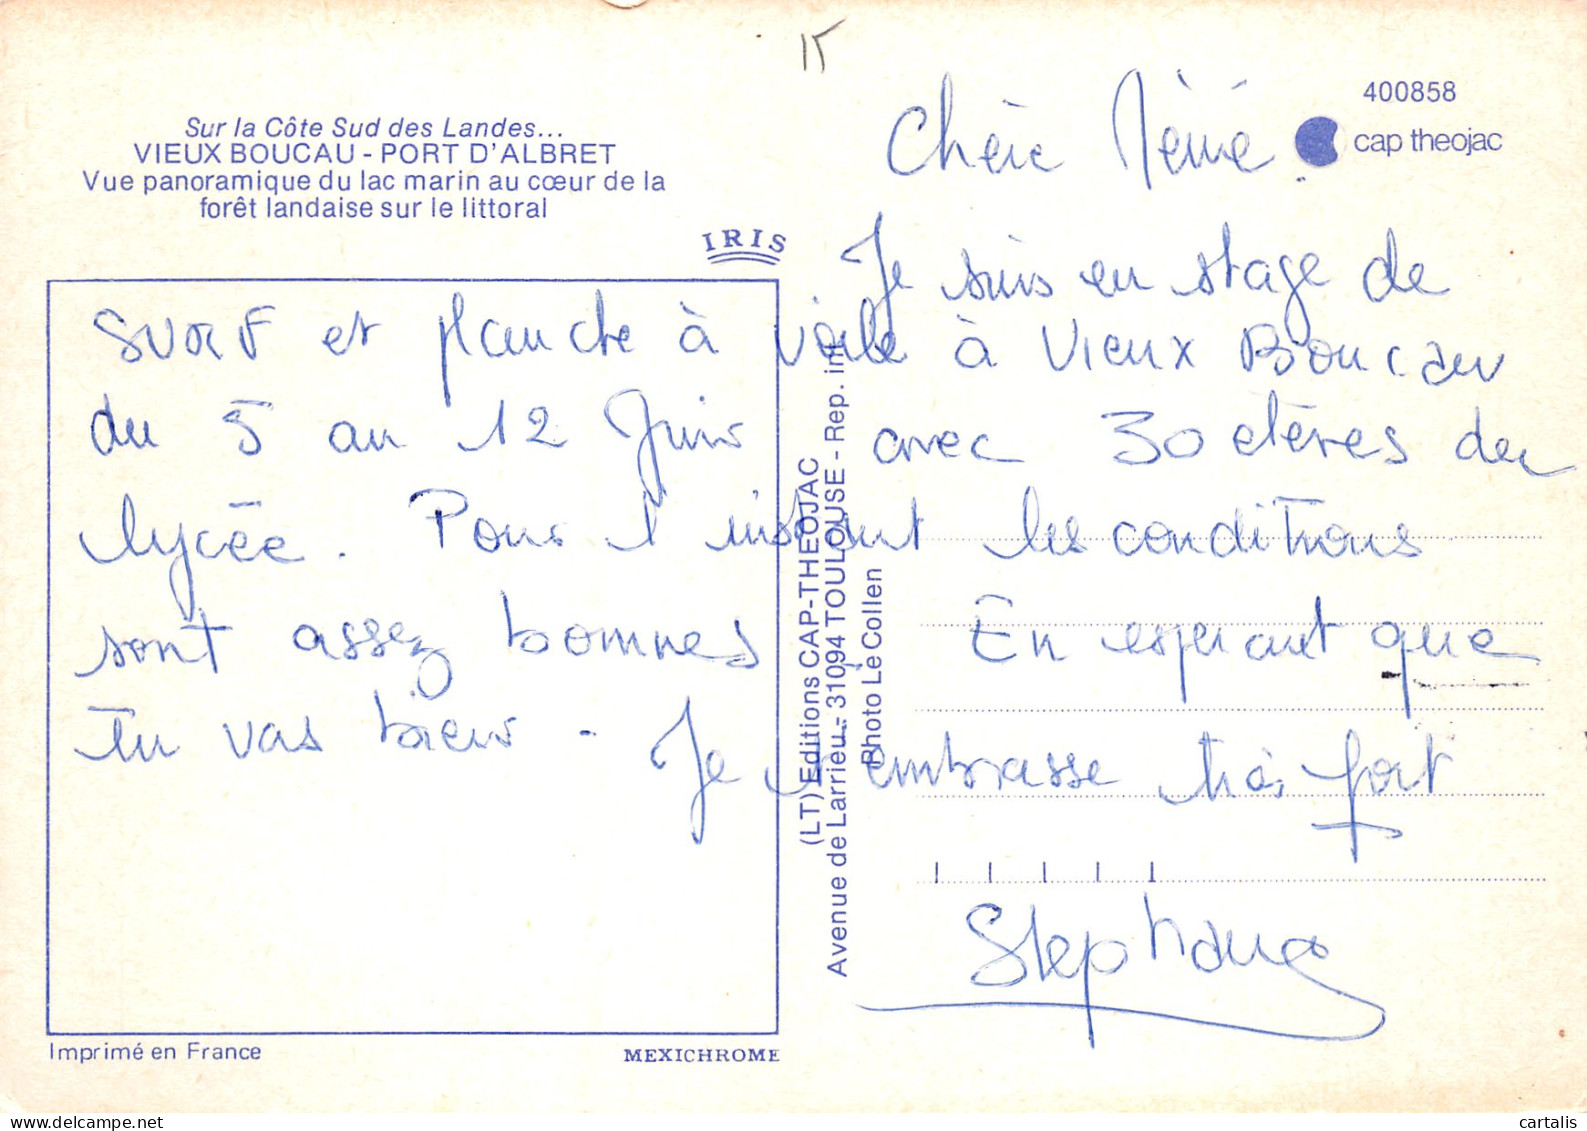 15
400858
cap theojac
Sur la Côte Sud des Landes...
VIEUX BOUCAU - PORT D'ALBRET
Vue panoramique du lac marin au cœur de la
forêt landaise sur le littoral
IRIS
Chère Mémé
Je suis en stage de
surf et planche à voile à Vieux Boucau
du 5 au 12 Juin avec 30 élèves du
lycée. Pour l'instant les conditions
sont assez bonnes En espérant que
tu vas bien. Je t'embrasse très fort
Stephane
(LT) Editions CAP-THEOJAC
Avenue de Larrieu - 31094 TOULOUSE - Rep. int.
Photo Le Collen
Imprimé en France
MEXICHROME
cartalis